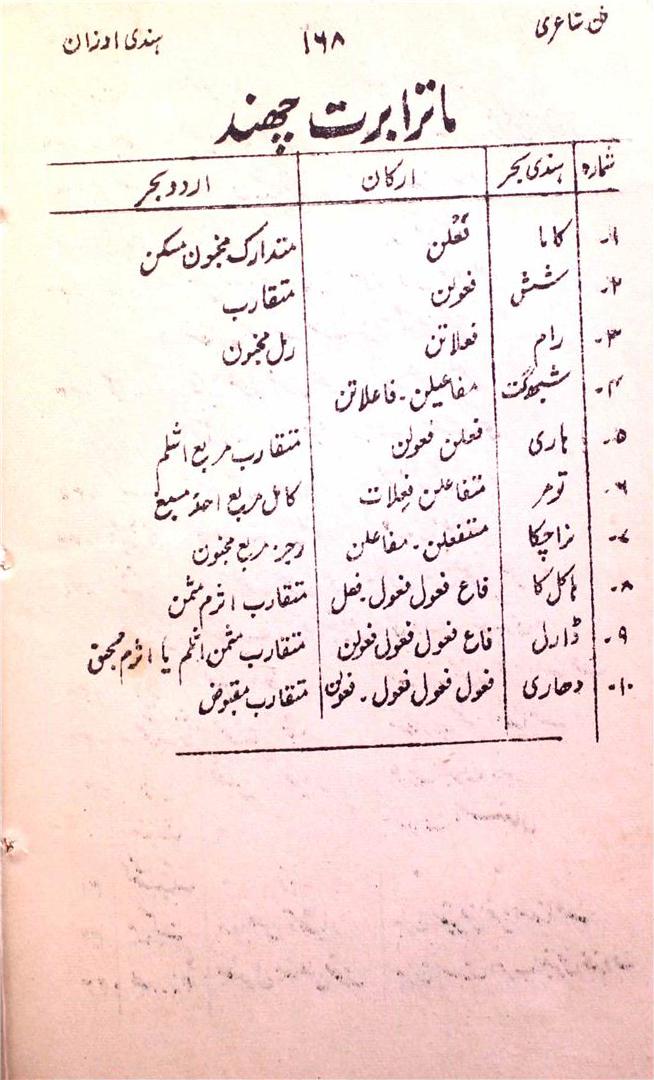 فن شاعری ۱۶۸ ہندی اوزان
ماترا برت چھند
شمارہ ہندی بحر ارکان اردو بحر
۱۔ کاما فَعْلن متدارک مخبون مسکن
۲۔ شش فعولن متقارب
۳۔ رام فعلاتن رمل مخبون
۴۔ شبھ گت مفاعیلن۔ فاعلاتن
۵۔ ہاری فعلن فعولن متقارب مربع اثلم
۶۔ تومر متفاعلن فعِلات کامل مربع احذ مسبغ
۷۔ نراچکا مستفعلن۔ مفاعلن رجز مربع مخبون
۸۔ ہاکل کا فاع فعول فعول۔ فعل متقارب اثرم مثمن
۹۔ ڈارل فاع فعول فعول فعولن متقارب مثمن اثلم یا اثرم محبق
۱۰۔ دھاری فعول فعول فعول۔ فعولن متقارب مقبوض